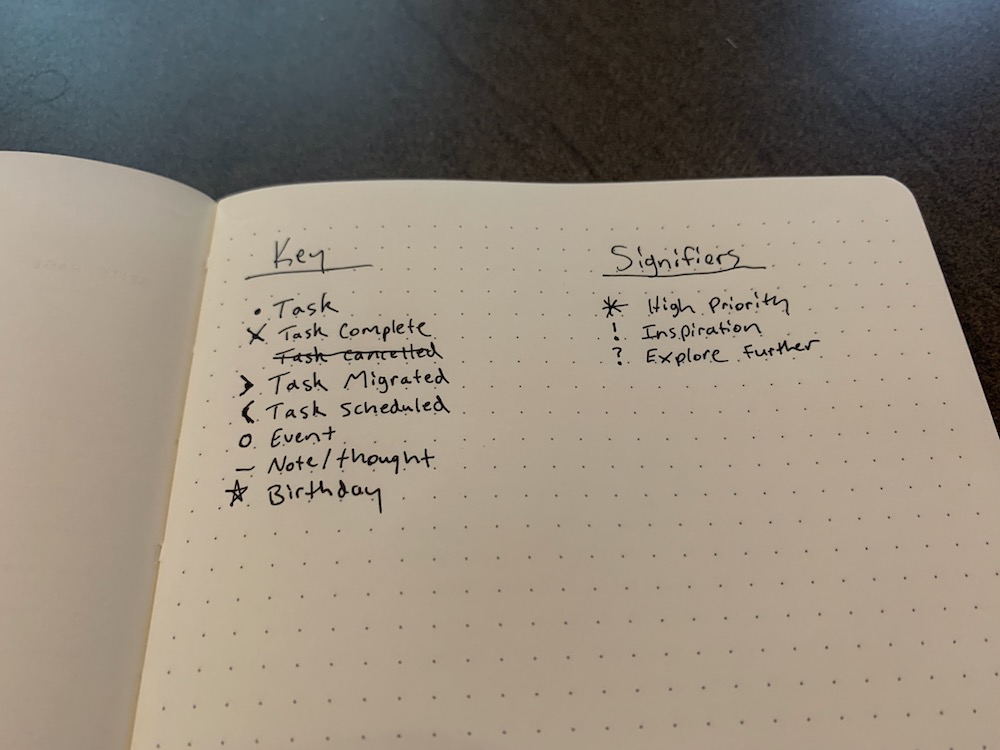 Key
• Task
X Task Complete
Task cancelled
> Task Migrated
< Task scheduled
o Event
– Note/thought
☆ Birthday
Signifiers
* High Priority
! Inspiration
? Explore further